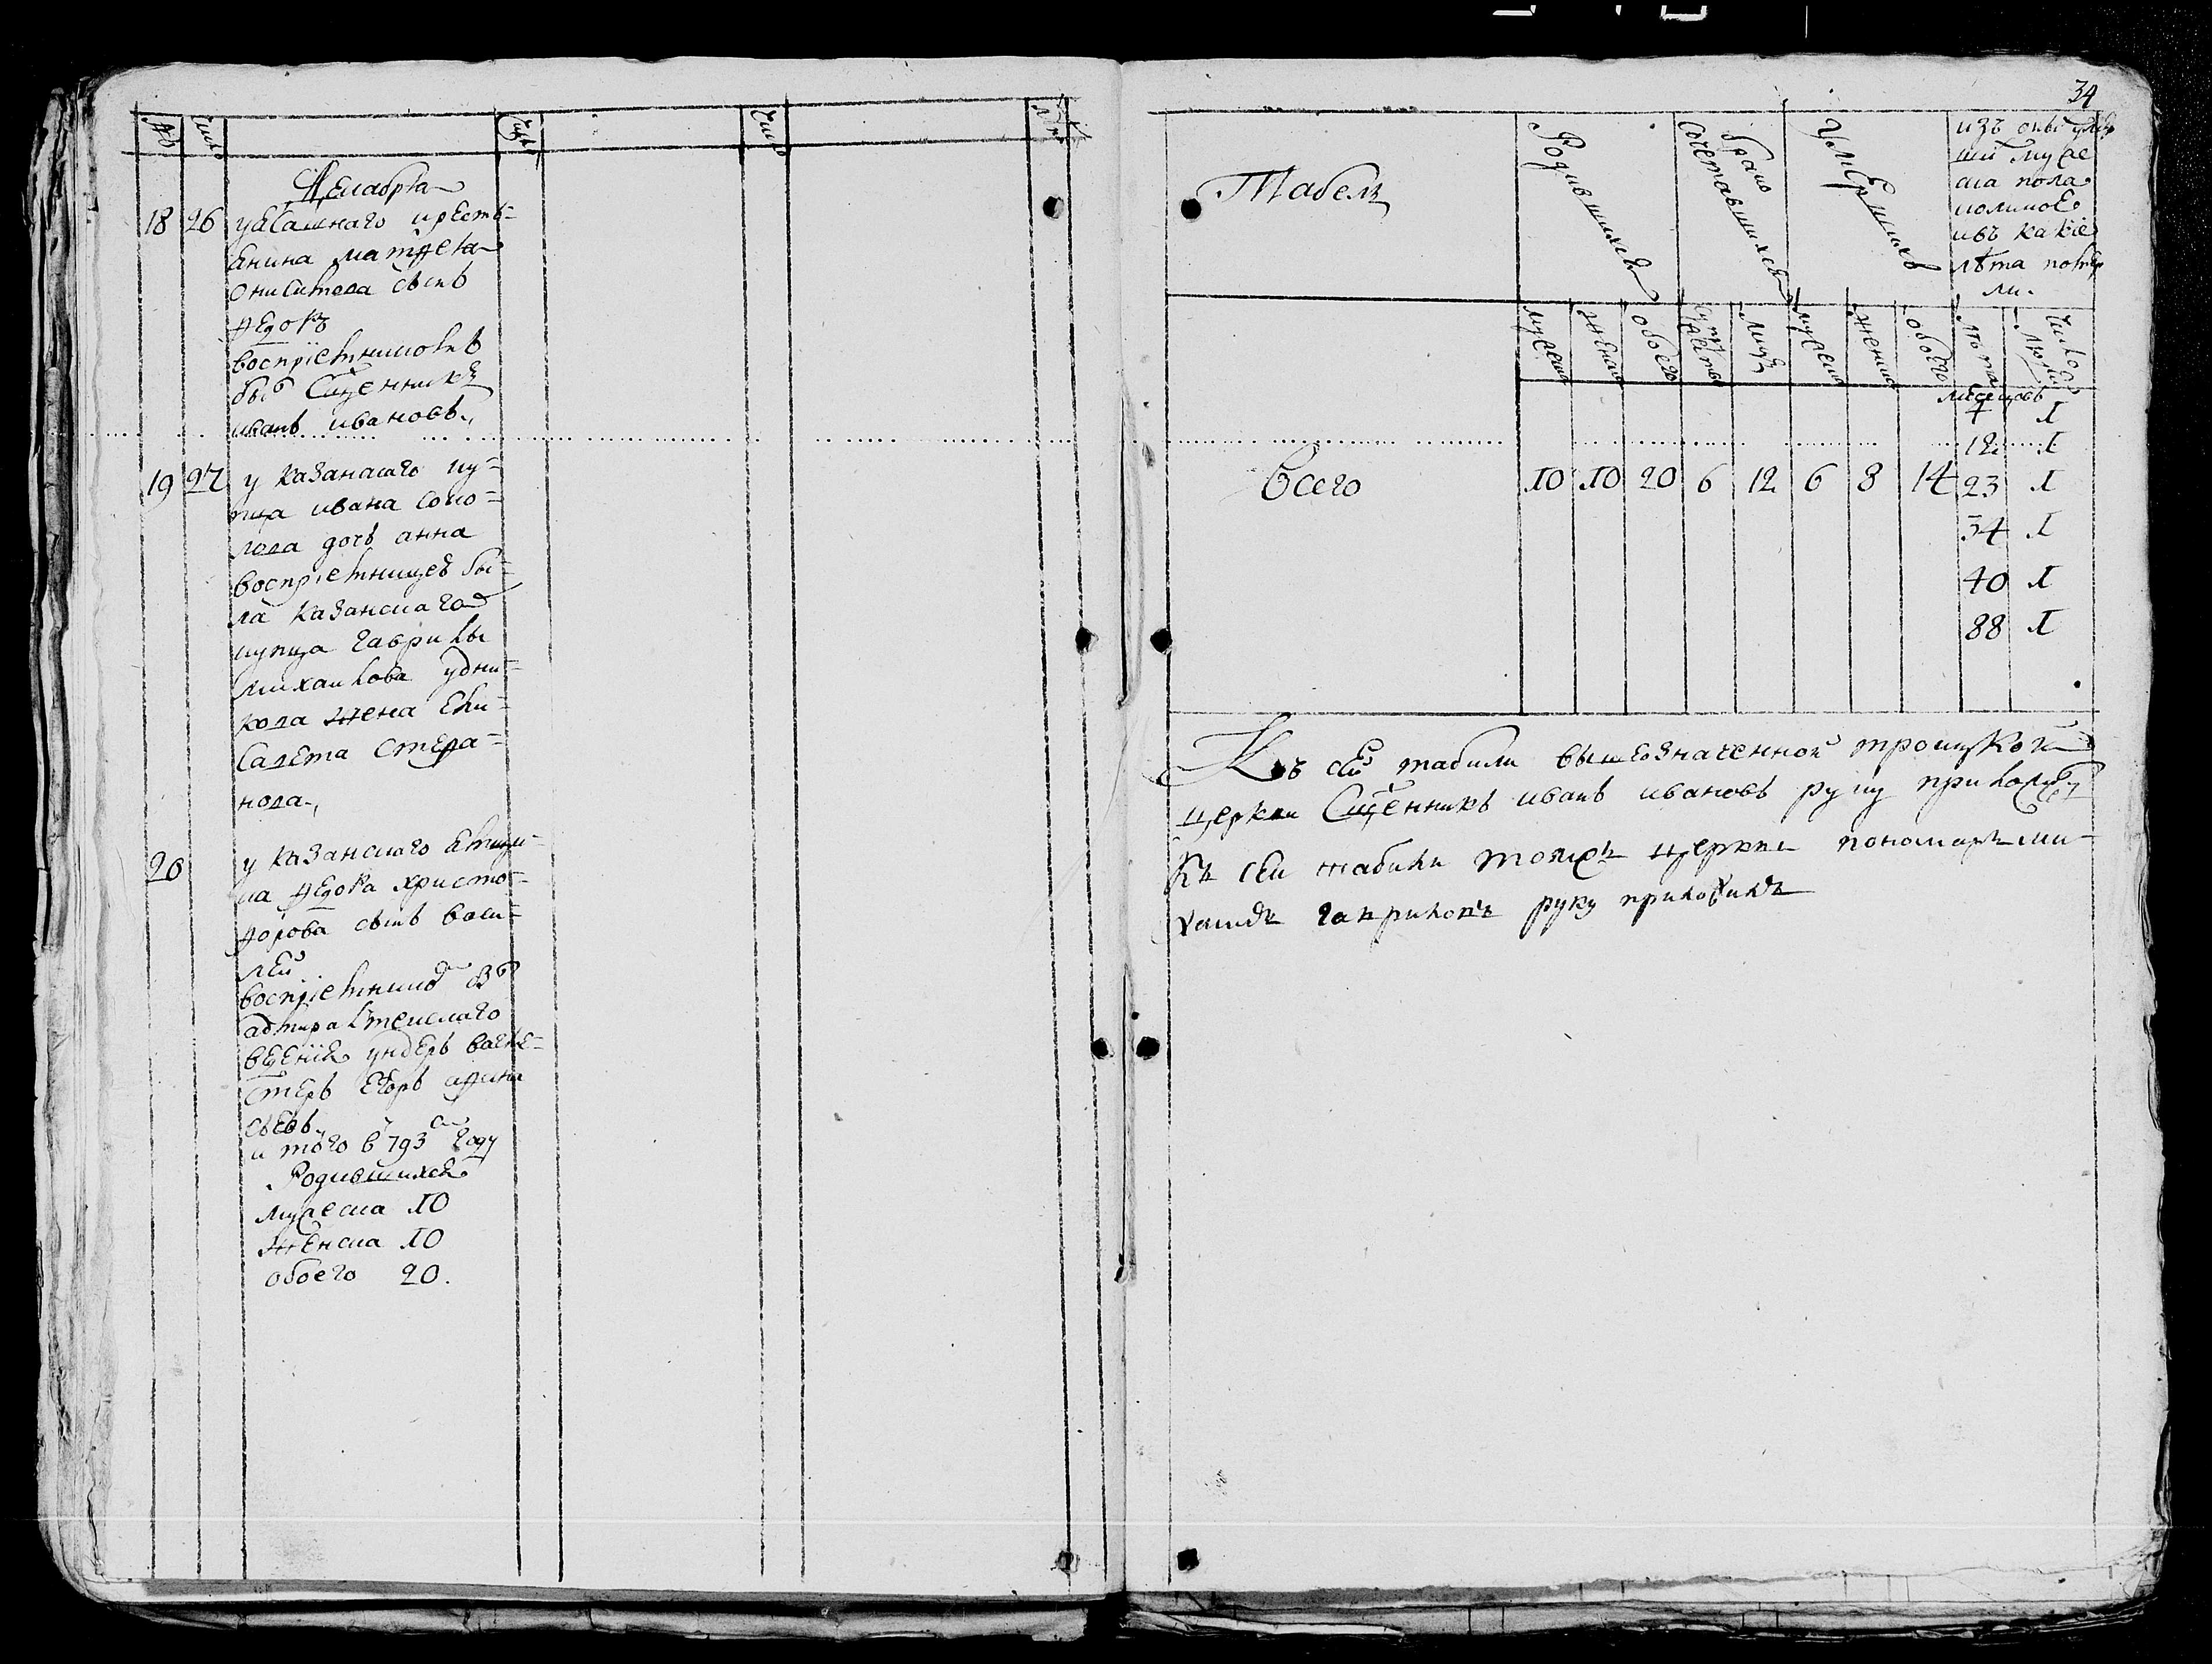 34
№
число
число
число
Декабря
18 26 у ясашнаго кресть=
янина матфея
Онисимова сынъ
Федоръ
воспріемникомъ
былъ Сщенникъ
иванъ ивановъ.
19 27 у казанскаго ку=
пца ивана соко=
лова дочь анна
воспріемницею бы=
ла казанскаго
купца гаврилы
михаилова
жена ели=
савета степа=
нова.
20 у казанскаго
федора христо=
форова сынъ васи=
лей
воспріемникомъ
адмиралтейскаго
веденія ундеръ
стеръ егоръ
итого в 793 году
Родившихся
мужеска 10
женска 10
обоего 20.
Табель
Родившихся
бракомъ сочетавшихся
умершихъ
изъ оныхъ умер
ши муже
ска пола
колико
и въ какіе
лѣта помер
ли.
мужеска
женска
обоего
лицъ
мужеска
женска
обоего
лѣта
число людей
месецовъ
1
12 1
Всего 10 10 20 6 12 6 8 14 23 1
34 1
40 1
88 1
Къ сей табели вышеозначенной троицкой
церкви Сщенникъ иванъ ивановъ руку приложилъ
Къ сей табели тояжъ церкви пономарь ми=
хаилъ гавриловъ руку приложилъ